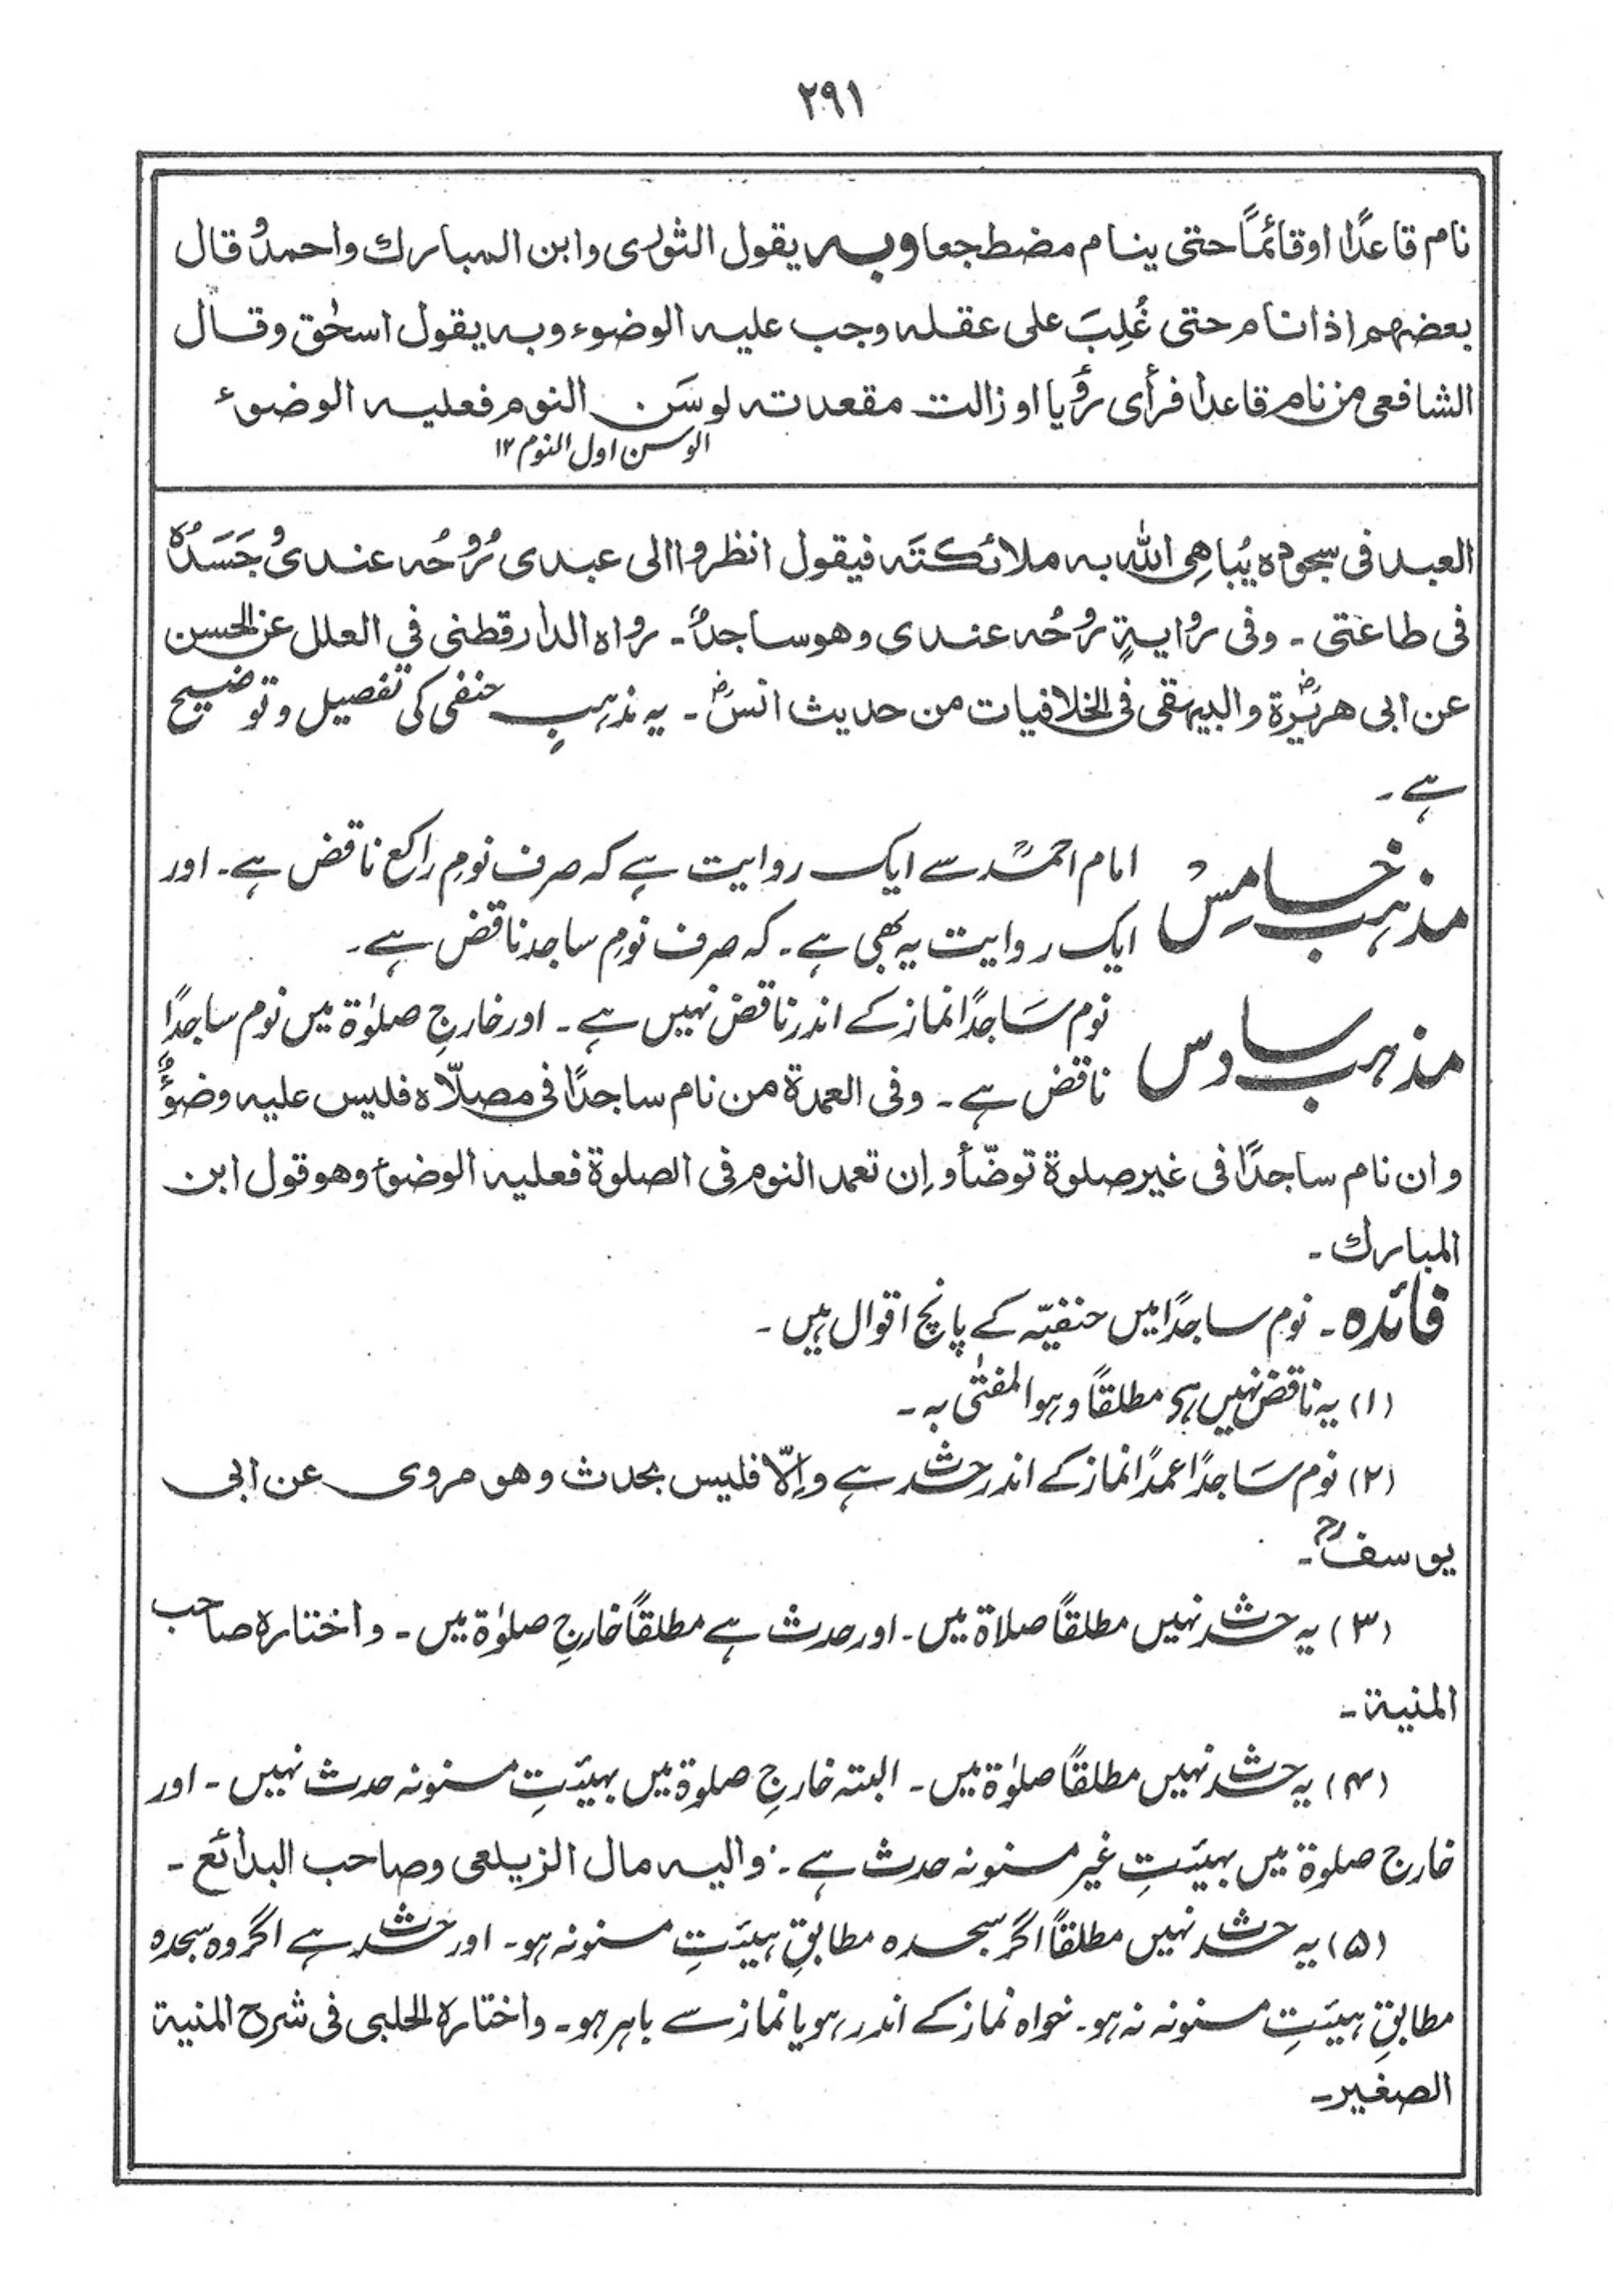 ۲۹۱
نام قاعدًا اوقائمًا حتی ینام مضطجعا وبه یقول الثوری وابن المبارك واحمدُ وقال
بعضهم اذا نام حتی غُلِبَ علی عقله وجب علیه الوضوء وبه یقول اسحٰق وقال
الشافعی من نام قاعدا فرأی رؤیا او زالت مقعدته لوسَن النوم فعلیه الوضوء
الوسن اول النوم ۱۲
العبد فی سجوده یُباهِی الله به ملائکتَه فیقول انظروا الی عبدی رُوحُه عندی وجَسَدُه
فی طاعتی ۔ وفی روایةٍ رُوحُه عندی وهو ساجدٌ ۔ رواه الدارقطنی فی العلل عن الحسن
عن ابی هریرةؓ والبیهقی فی الخلافیات من حدیث انسؓ ۔ یہ مذہبِ حنفی کی تفصیل و توضیح
ہے ۔
مذہب خامسْ امام احمدؒ سے ایک روایت ہے کہ صرف نومِ راکع ناقض ہے ۔ اور
ایک روایت یہ بھی ہے ۔ کہ صرف نومِ ساجد ناقض ہے ۔
مذہب سادس نوم سَاجدًا نماز کے اندر ناقض نہیں ہے ۔ اور خارجِ صلوٰۃ میں نوم ساجدًا
ناقض ہے ۔ وفی العمدة من نام ساجدًا فی مصلّاه فلیس علیه وضوءٌ
وان نام ساجدًا فی غیر صلوة توضّأ وإن تعمد النوم فی الصلوة فعلیه الوضوء وهو قول ابن
المبارك ۔
فائدہ ۔ نوم ساجدًا میں حنفیّہ کے پانچ اقوال ہیں ۔
(۱) یہ ناقض نہیں ہے مطلقًا وہو المفتٰی بہ ۔
(۲) نوم سَاجدًا عمدًا نماز کے اندر حدث ہے و إلّا فلیس بحدث وهو مروی عن ابی
یوسفؒ ۔
(۳) یہ حدث نہیں مطلقًا صلاۃ میں ۔ اور حدث ہے مطلقًا خارجِ صلوٰۃ میں ۔ واختاره صاحب
المنیة ۔
(۴) یہ حدث نہیں مطلقًا صلوٰۃ میں ۔ البتہ خارجِ صلوۃ میں بہیئتِ مسنونہ حدث نہیں ۔ اور
خارج صلوۃ میں بہیئتِ غیر مسنونہ حدث ہے ۔ والیه مال الزیلعی وصاحب البدائع ۔
(۵) یہ حدث نہیں مطلقًا اگر سجدہ مطابقِ ہیئتِ مسنونہ ہو ۔ اور حدث ہے اگر وہ سجدہ
مطابقِ ہیئتِ مسنونہ نہ ہو ۔ خواہ نماز کے اندر ہو یا نماز سے باہر ہو ۔ واختاره الحلبی فی شرح المنیة
الصغیر ۔